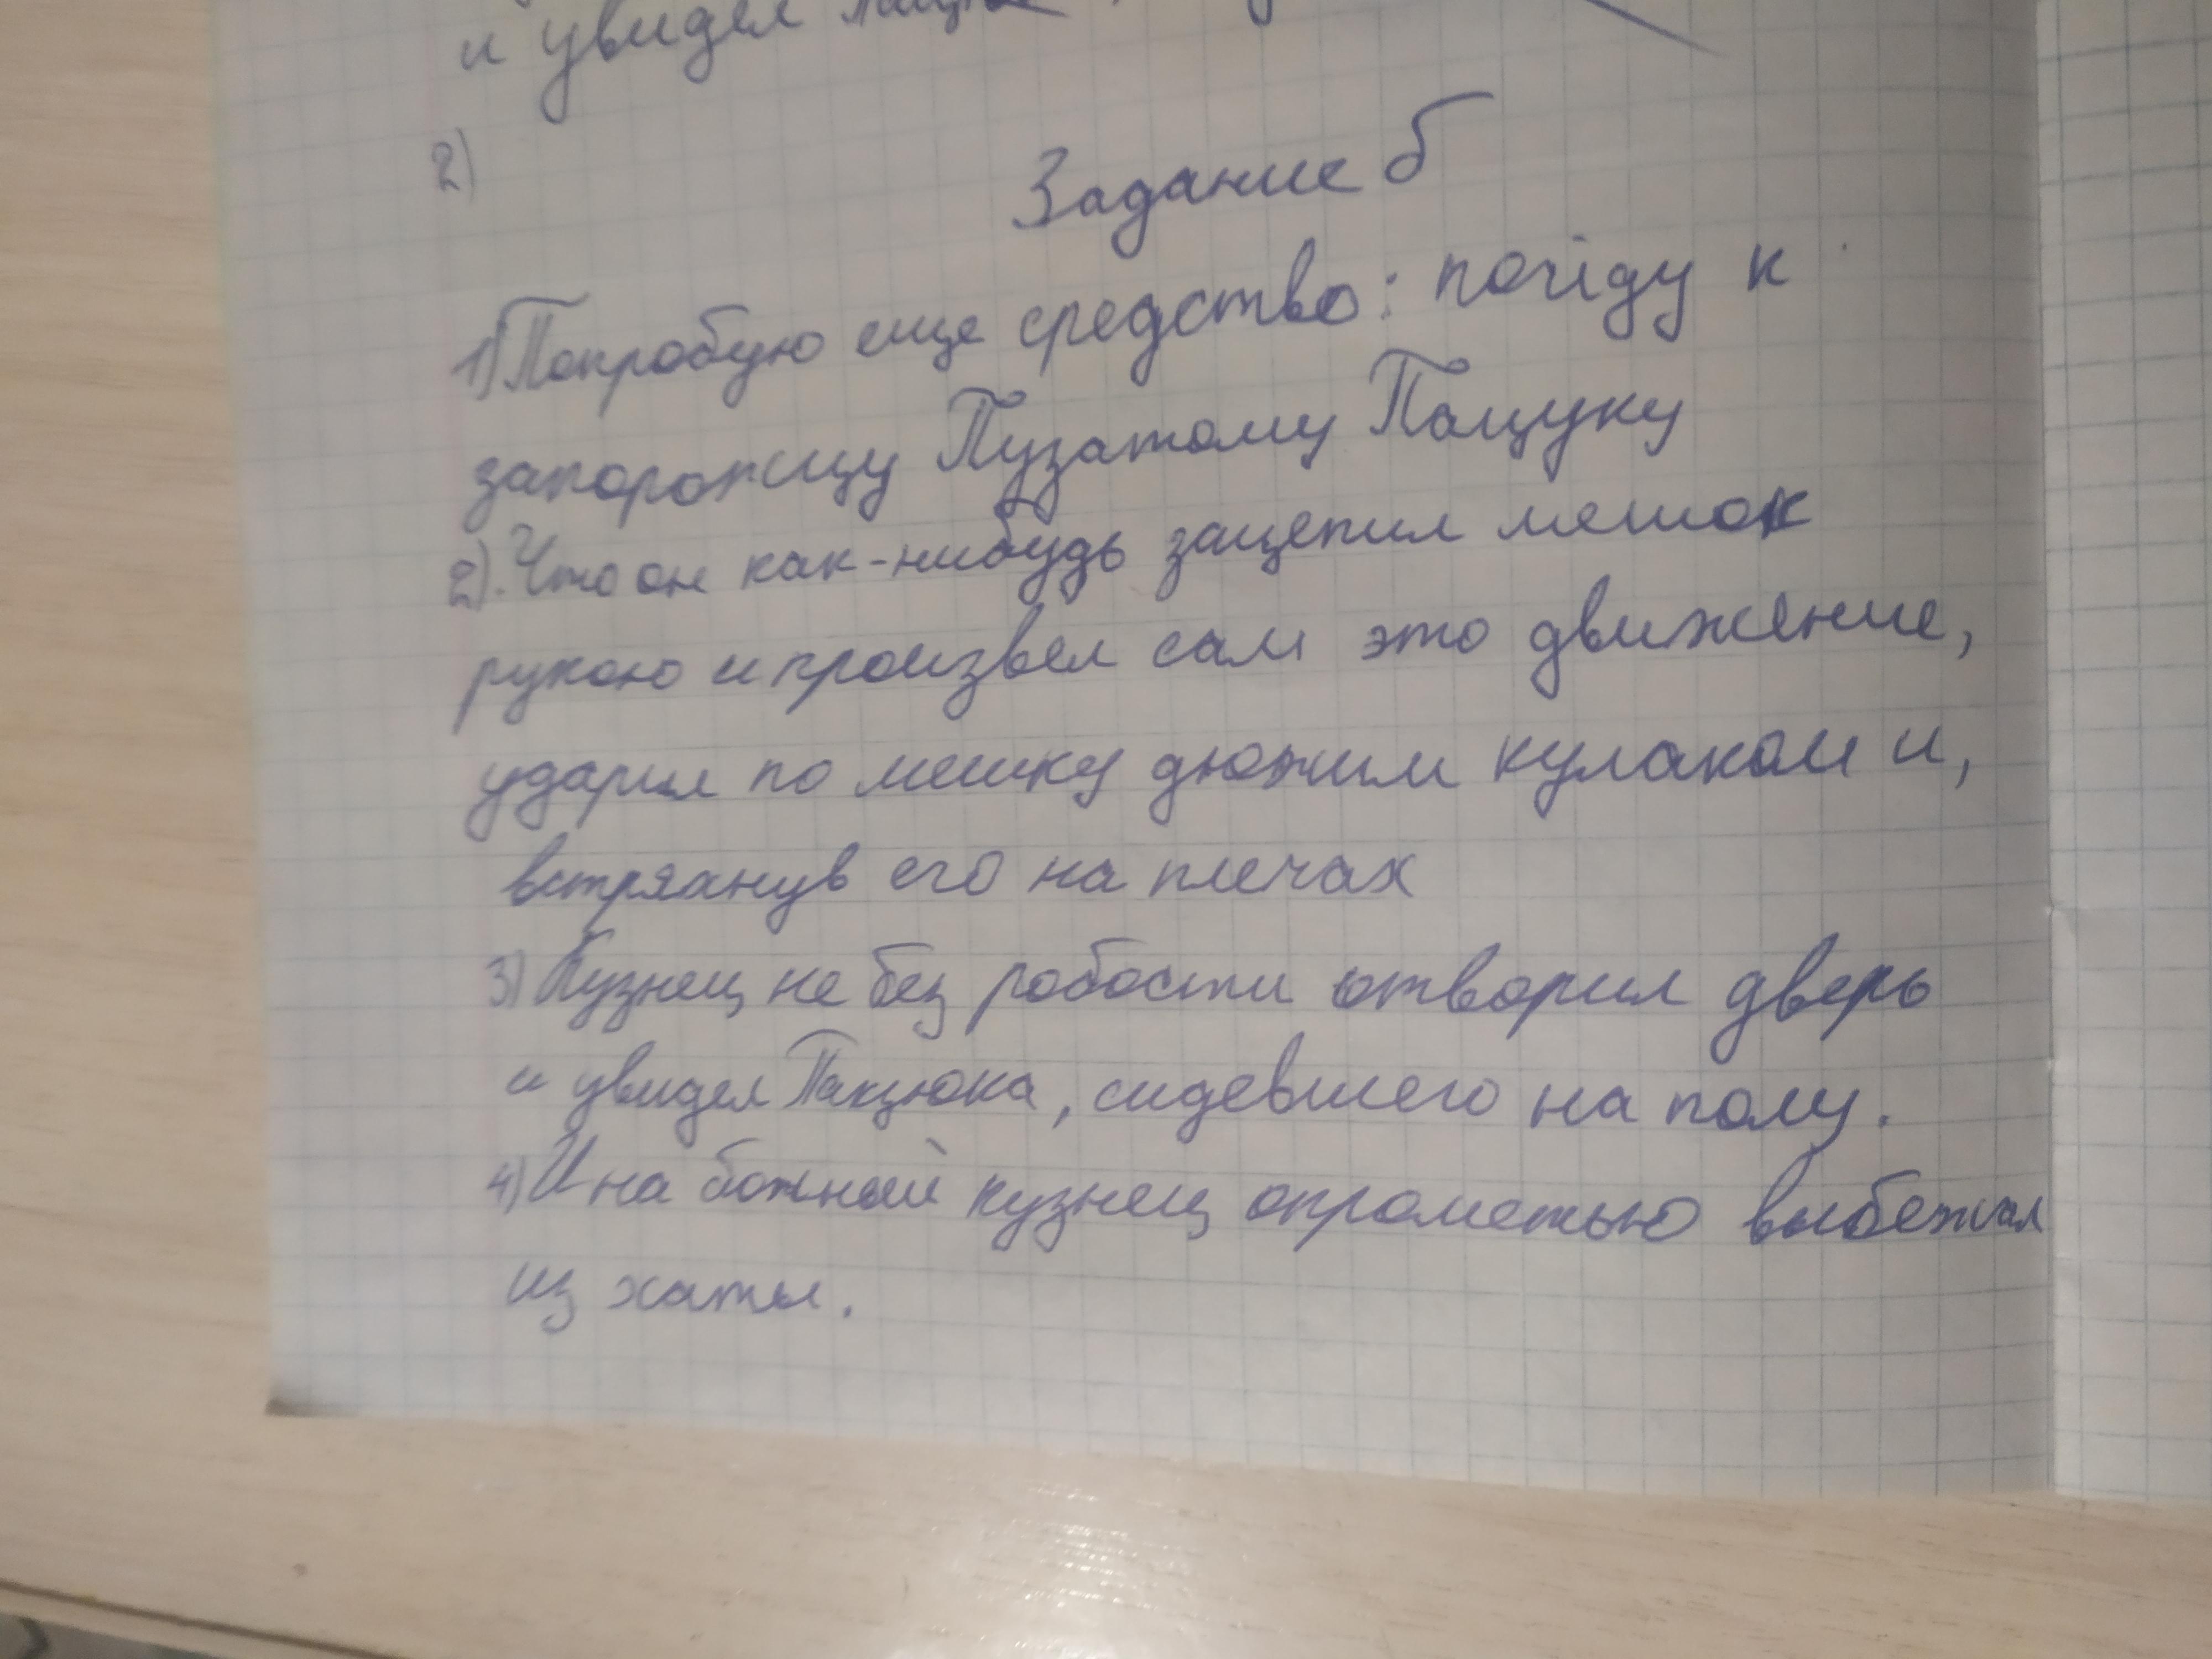 и увидел
2)
Задание б
1) Попробую еще средство: пойду к
запорожцу Пузатому Пацуку
2). Что он как-нибудь зацепил мешок
рукою и произвел сам это движение,
ударил по мешку дюжим кулаком и,
встряхнув его на плечах
3) Кузнец не без робости отворил дверь
и увидел Пацюка, сидевшего на полу.
4) И на божный кузнец опрометью выбежал
из хаты.